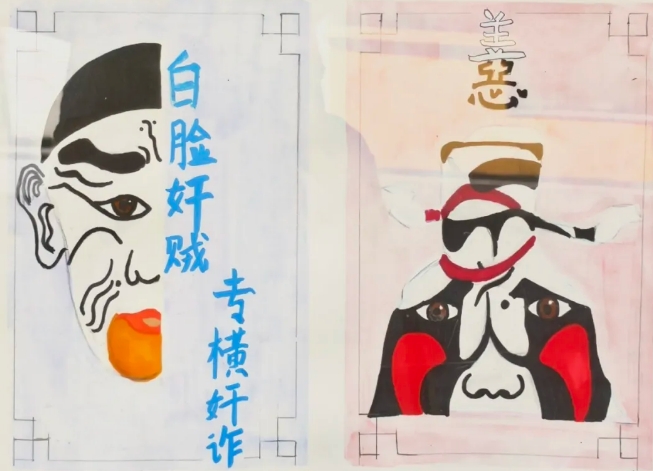 白脸奸贼
专横奸诈
善恶